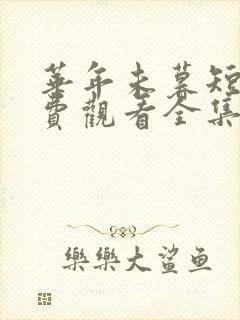 華年未暮短
費觀看全集
樂樂大鯊魚